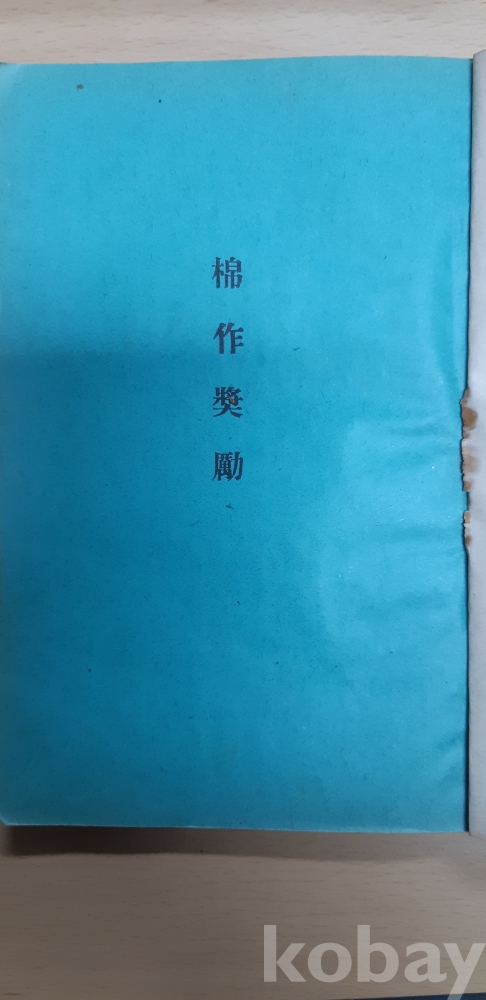 棉作奬勵
kobay